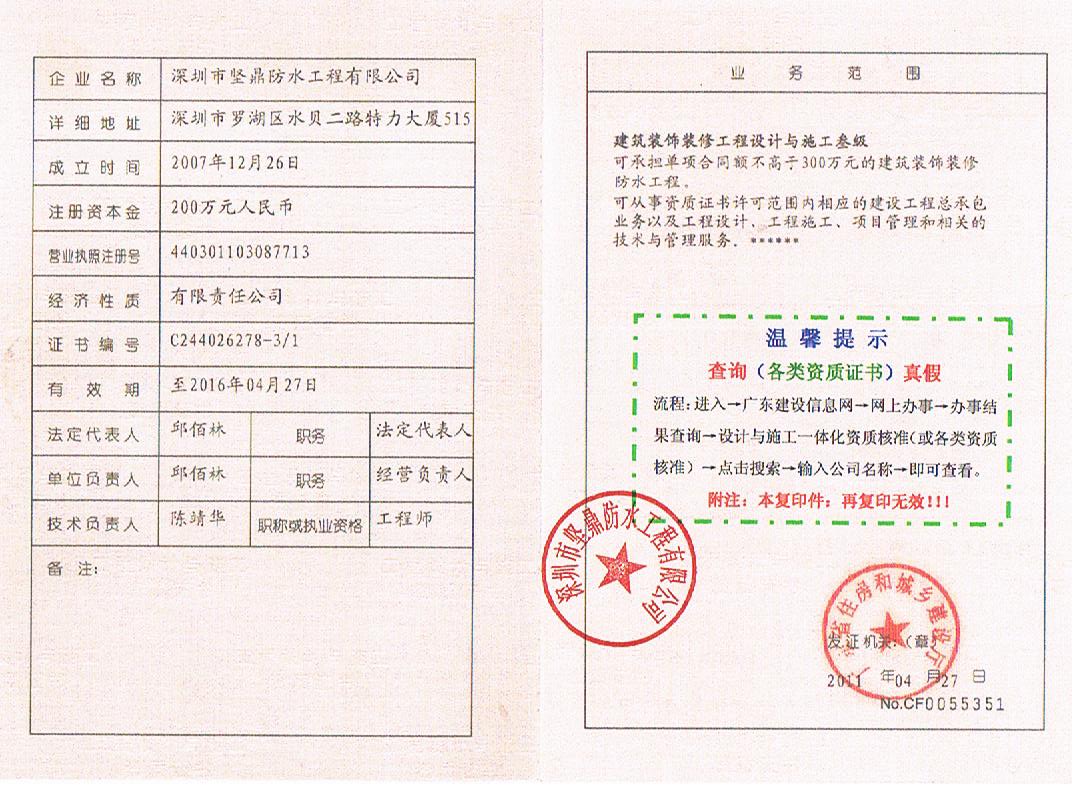 企业名称 深圳市坚鼎防水工程有限公司
详细地址 深圳市罗湖区水贝二路特力大厦515
成立时间 2007年12月26日
注册资本金 200万元人民币
营业执照注册号 440301103087713
经济性质 有限责任公司
证书编号 C244026278-3/1
有效期 至2016年04月27日
法定代表人 邱佰林 职务 法定代表人
单位负责人 邱佰林 职务 经营负责人
技术负责人 陈靖华 职称或执业资格 工程师
备注:
业务范围
建筑装饰装修工程设计与施工叁级
可承担单项合同额不高于300万元的建筑装饰装修
防水工程。
可从事资质证书许可范围内相应的建设工程总承包
业务以及工程设计、工程施工、项目管理和相关的
技术与管理服务。******
温馨提示
查询（各类资质证书）真假
流程:进入→广东建设信息网→网上办事→办事结
果查询→设计与施工一体化资质核准(或各类资质
核准）→点击搜索→输入公司名称→即可查看。
附注：本复印件：再复印无效!!!
深圳市坚鼎防水工程有限公司
广东省住房和城乡建设厅
发证机关:（章）
2011 年04 月27 日
No.CF0055351